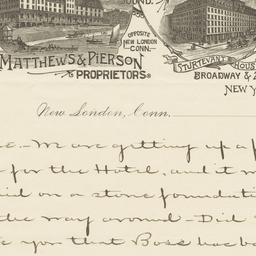 OUND.
OPPOSITE
NEW LONDON
CONN.
MATTHEWS & PIERSON
PROPRIETORS
STURTEVANT HOUS
BROADWAY & 2
NEW Y
New London, Conn.
We are getting up a
for the Hotel, and it
on a stone founda
the way around - Did
you that Boss has